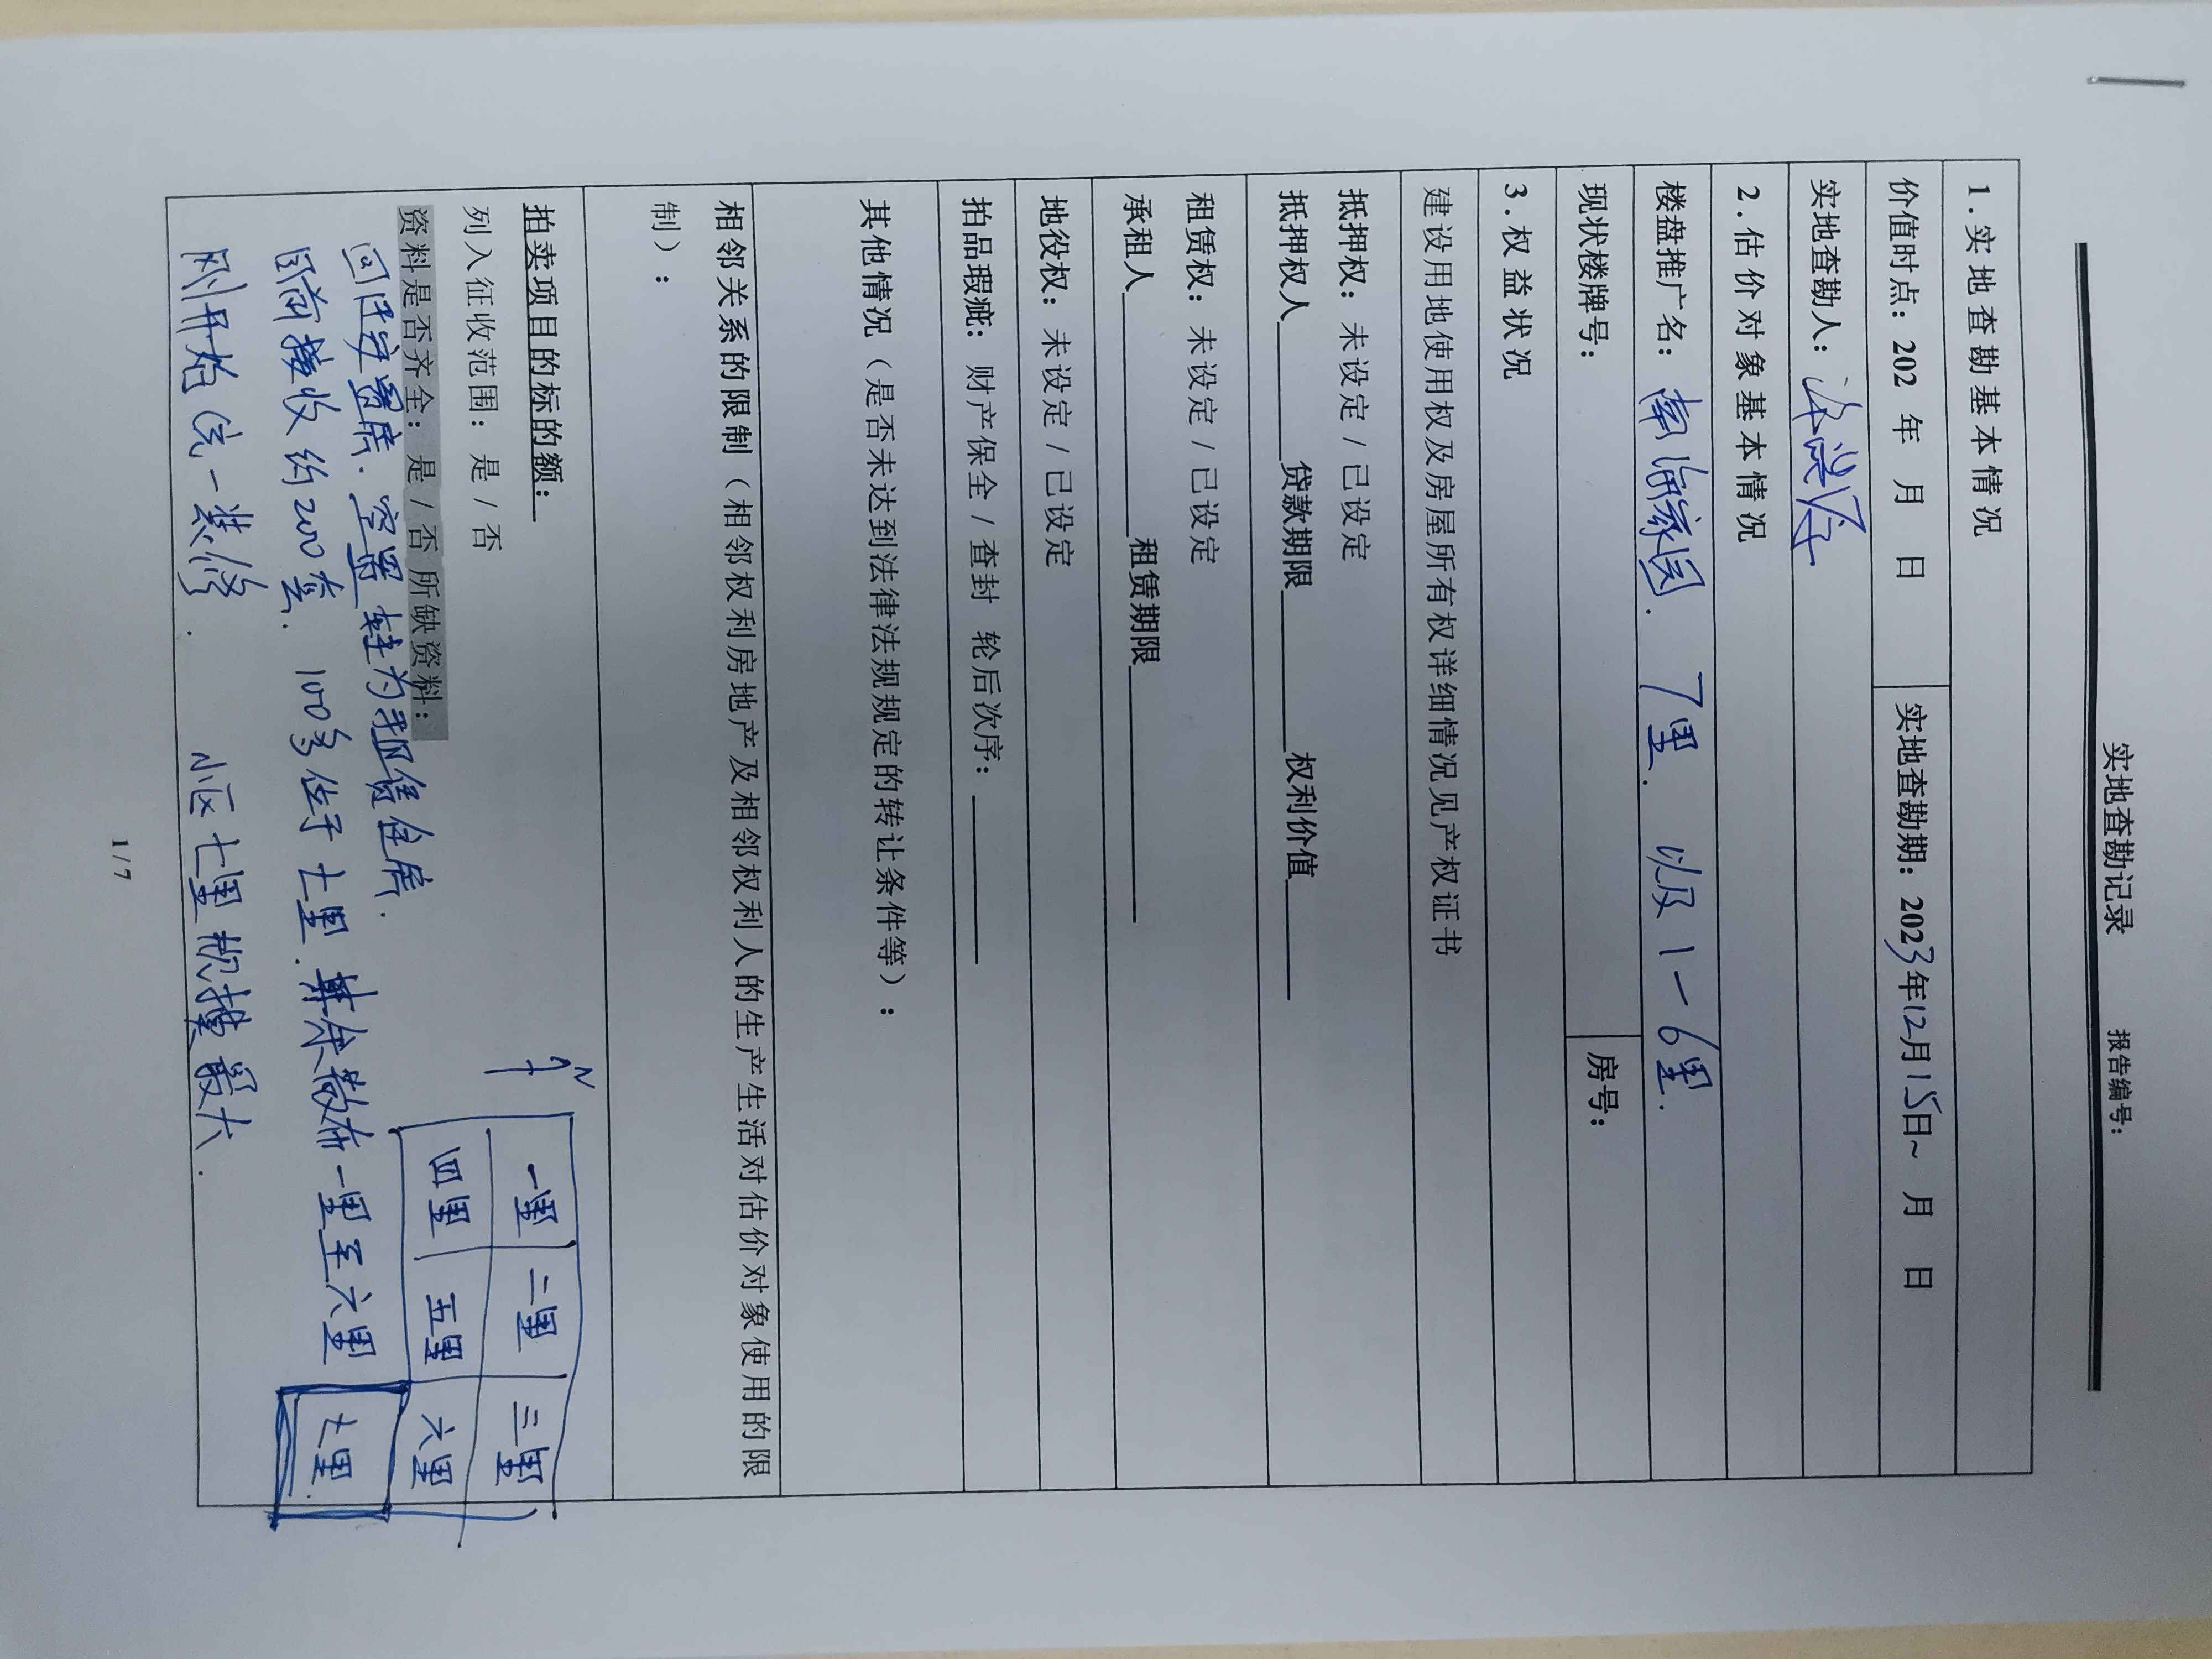 实地查勘记录
报告编号：
1.实地查勘基本情况
价值时点：202 年 月 日 实地查勘期：2023年12月15日~ 月 日
实地查勘人：
2.估价对象基本情况
楼盘推广名：南海家园. 7里. 以及1-6里.
现状楼牌号： 房号：
3.权益状况
建设用地使用权及房屋所有权详细情况见产权证书
抵押权：未设定/已设定
抵押权人 贷款期限 权利价值
租赁权：未设定/已设定
承租人 租赁期限
地役权：未设定/已设定
拍品瑕疵：财产保全/查封 轮后次序：
其他情况（是否未达到法律法规规定的转让条件等）：
相邻关系的限制（相邻权利房地产及相邻权利人的生产生活对估价对象使用的限
制）：
拍卖项目的标的额：
列入征收范围：是/否
资料是否齐全：是/否 所缺资料：
回迁安置房. 空置 转为租赁住房.
目前接收约200套. 100多位于七里. 其余散布一里至六里
刚开始统一装修. 小区七里规模最大.
N
一里 二里 三里
四里 五里 六里
七里
1/7